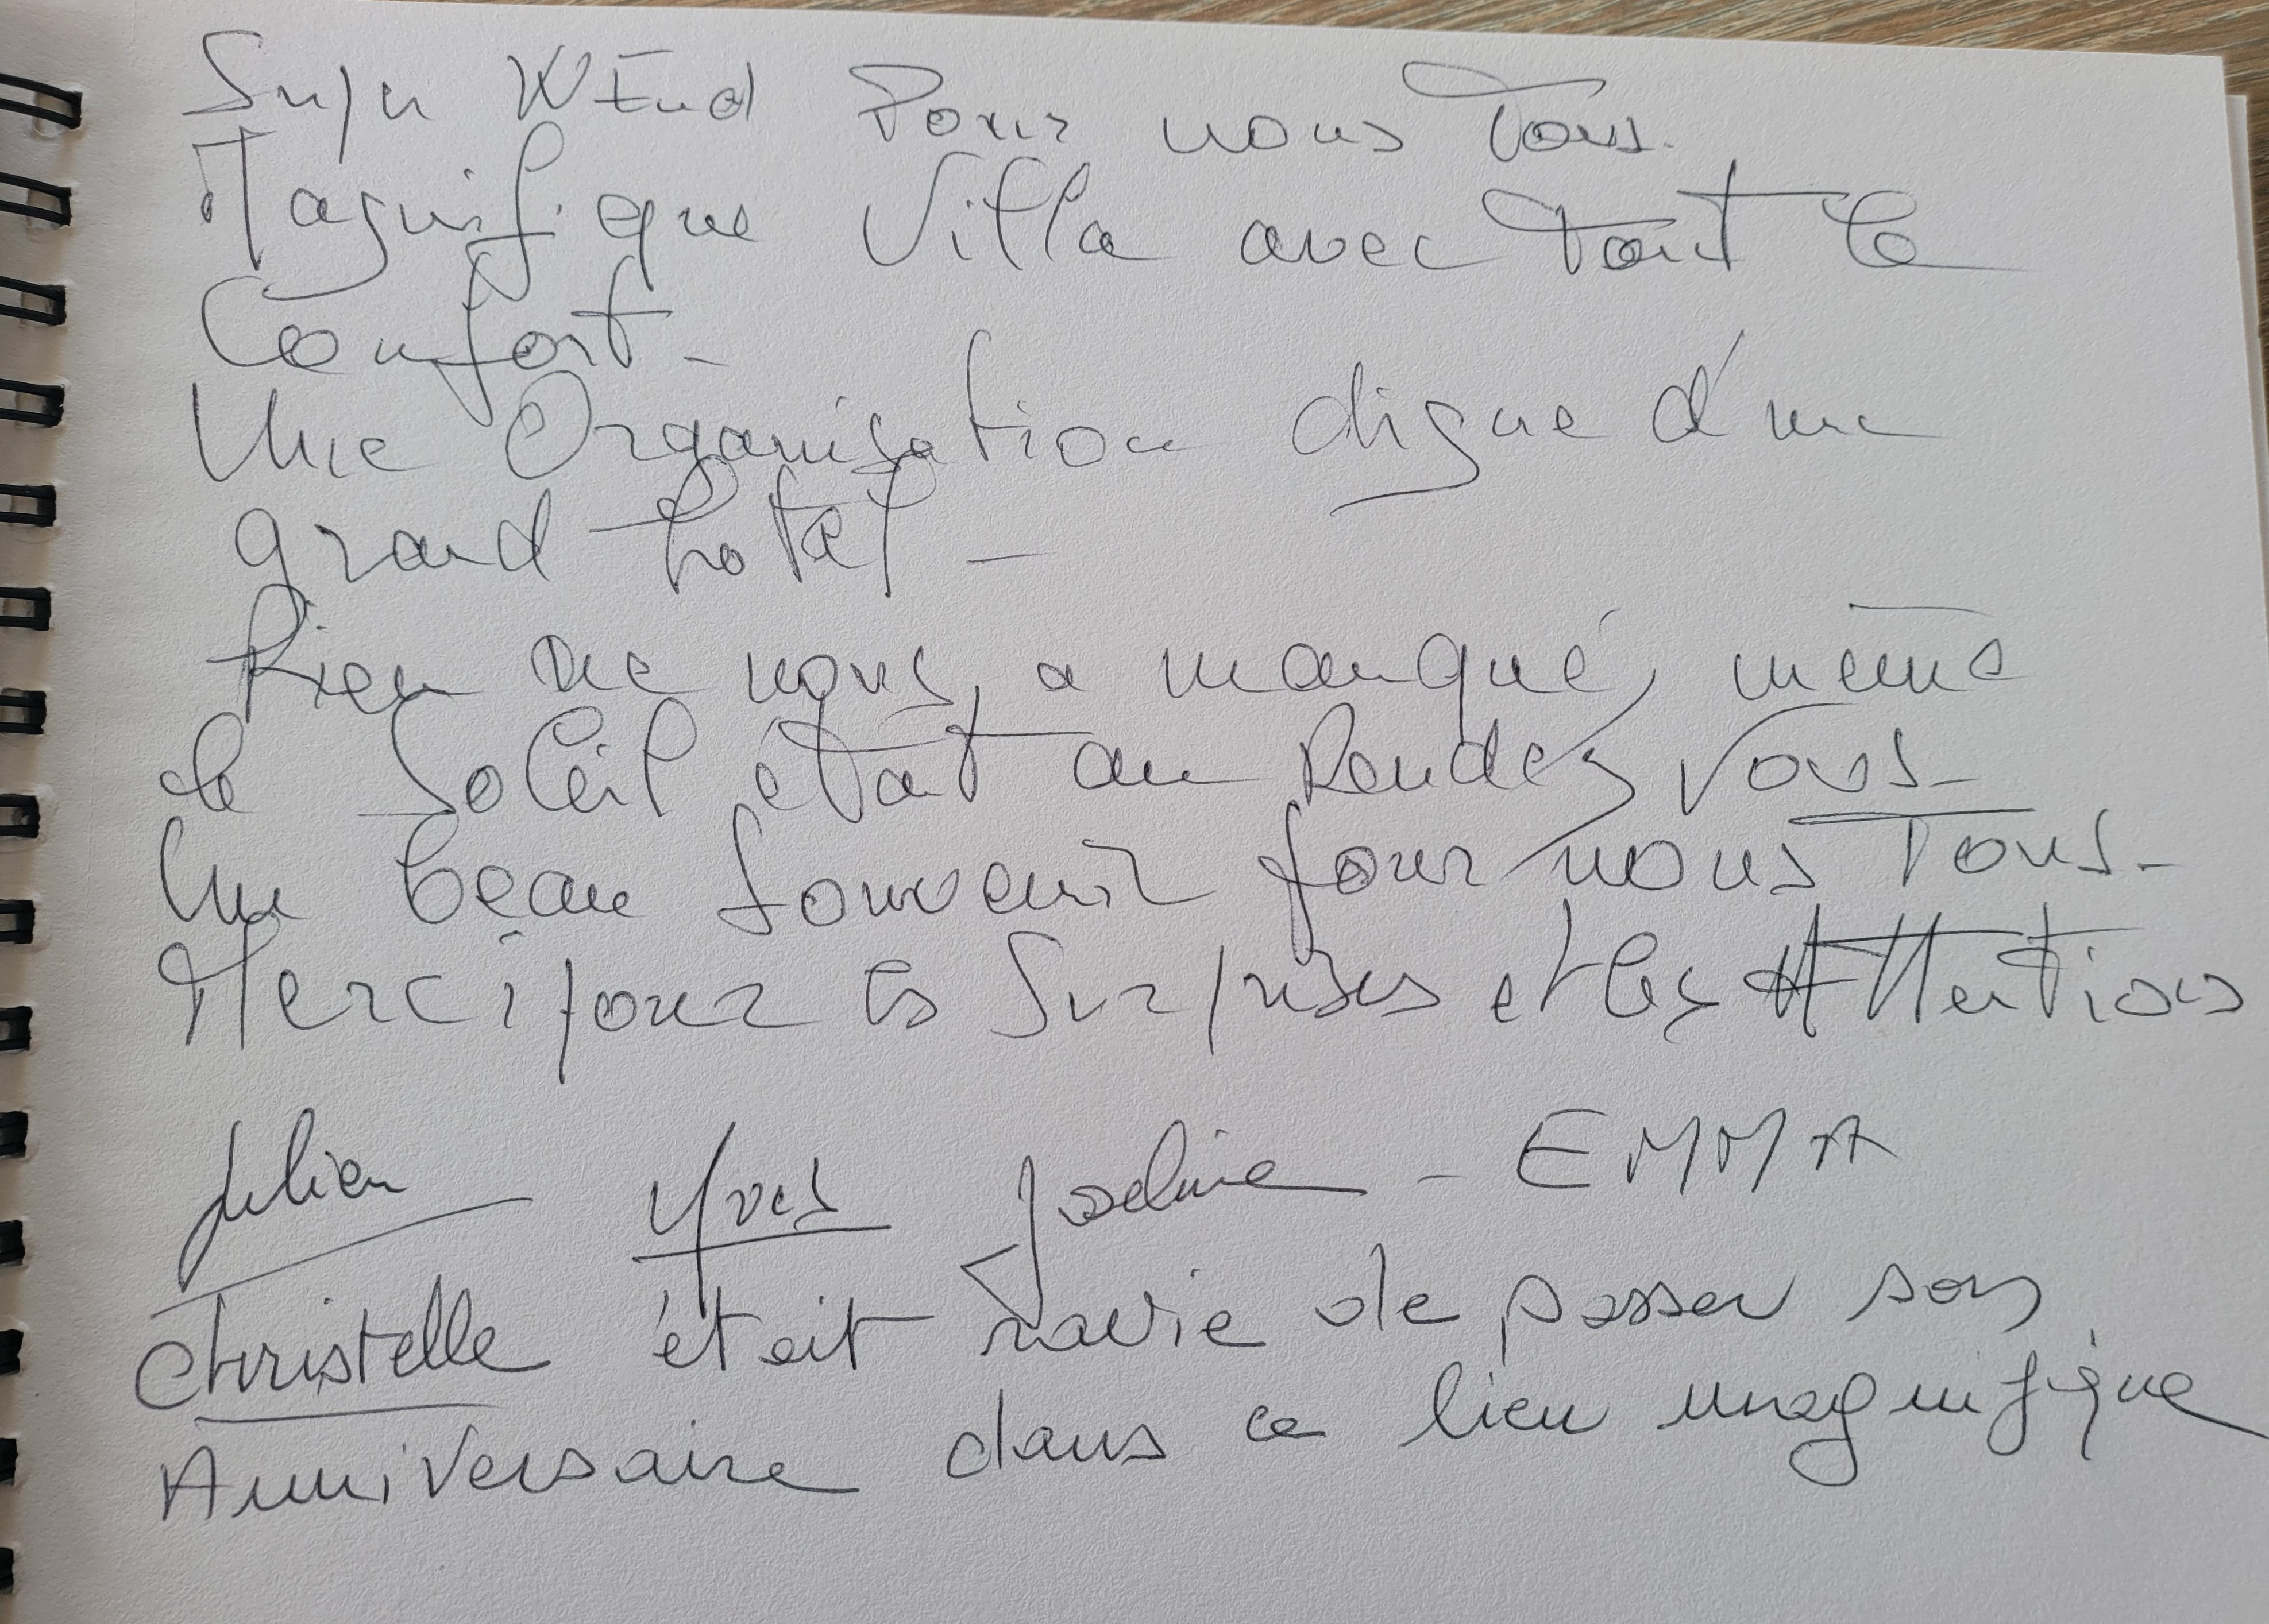 Super WEnd Pour nous Tous.
Magnifique Villa avec Tout le
Confort -
Une Organisation digne d'un
grand hotel -
Rien ne nous a manqué, même
le Soleil était au Rendez Vous -
Un beau Souvenir pour nous Tous -
Merci pour les Surprises et les Attentions
Julien Yves Joeline - EMMA
Christelle était ravie de passer son
Anniversaire dans ce lieu magnifique